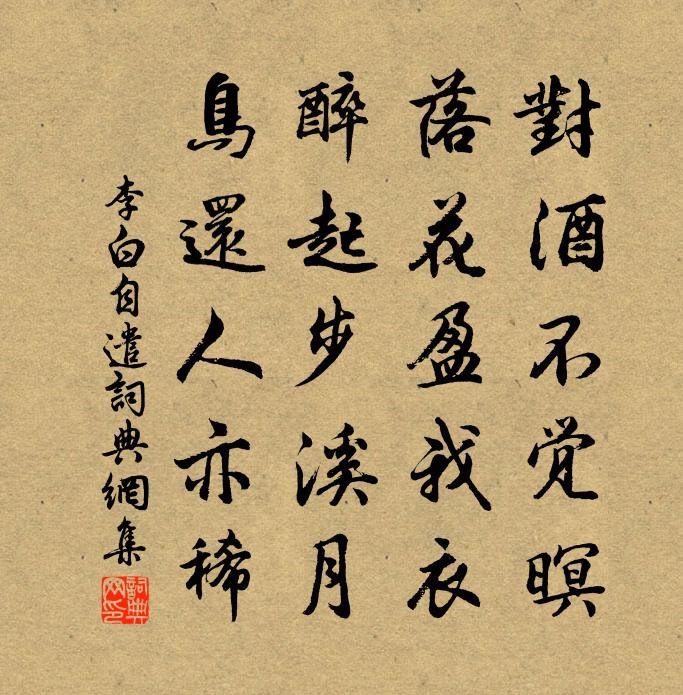 對酒不覺暝
落花盈我衣
醉起步溪月
鳥還人亦稀
李白自遣詞典網集
詞典网印